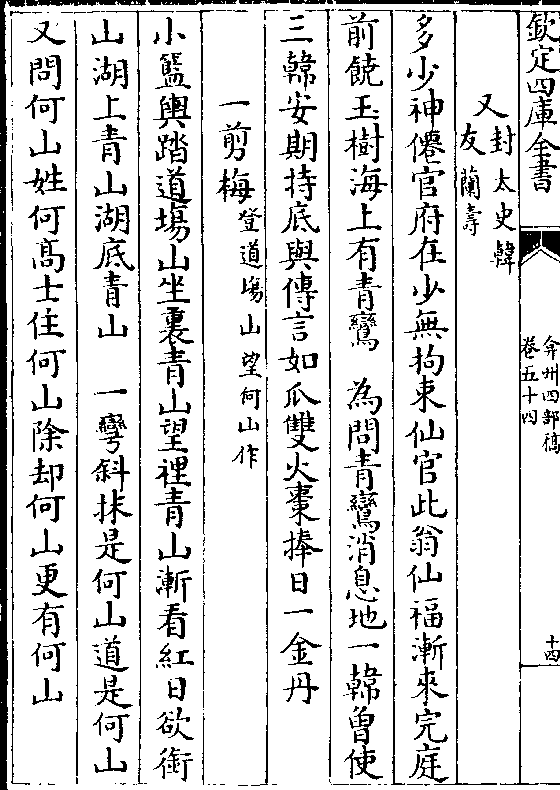 欽定四庫全書
弇州四部稿
卷五十四
十四
又封太史韓
友蘭壽
多少神僊官府在少無拘束仙官此翁仙福漸來完庭
前饒玉樹海上有青鸞　為問青鸞消息地一韓曾使
三韓安期持底與傳言如瓜雙火棗捧日一金丹
一剪梅登道場山望何山作
小籃輿踏道場山坐裏青山望裡青山漸看紅日欲銜
山湖上青山湖底青山　一彎斜抹是何山道是何山
又問何山姓何高士住何山除却何山更有何山